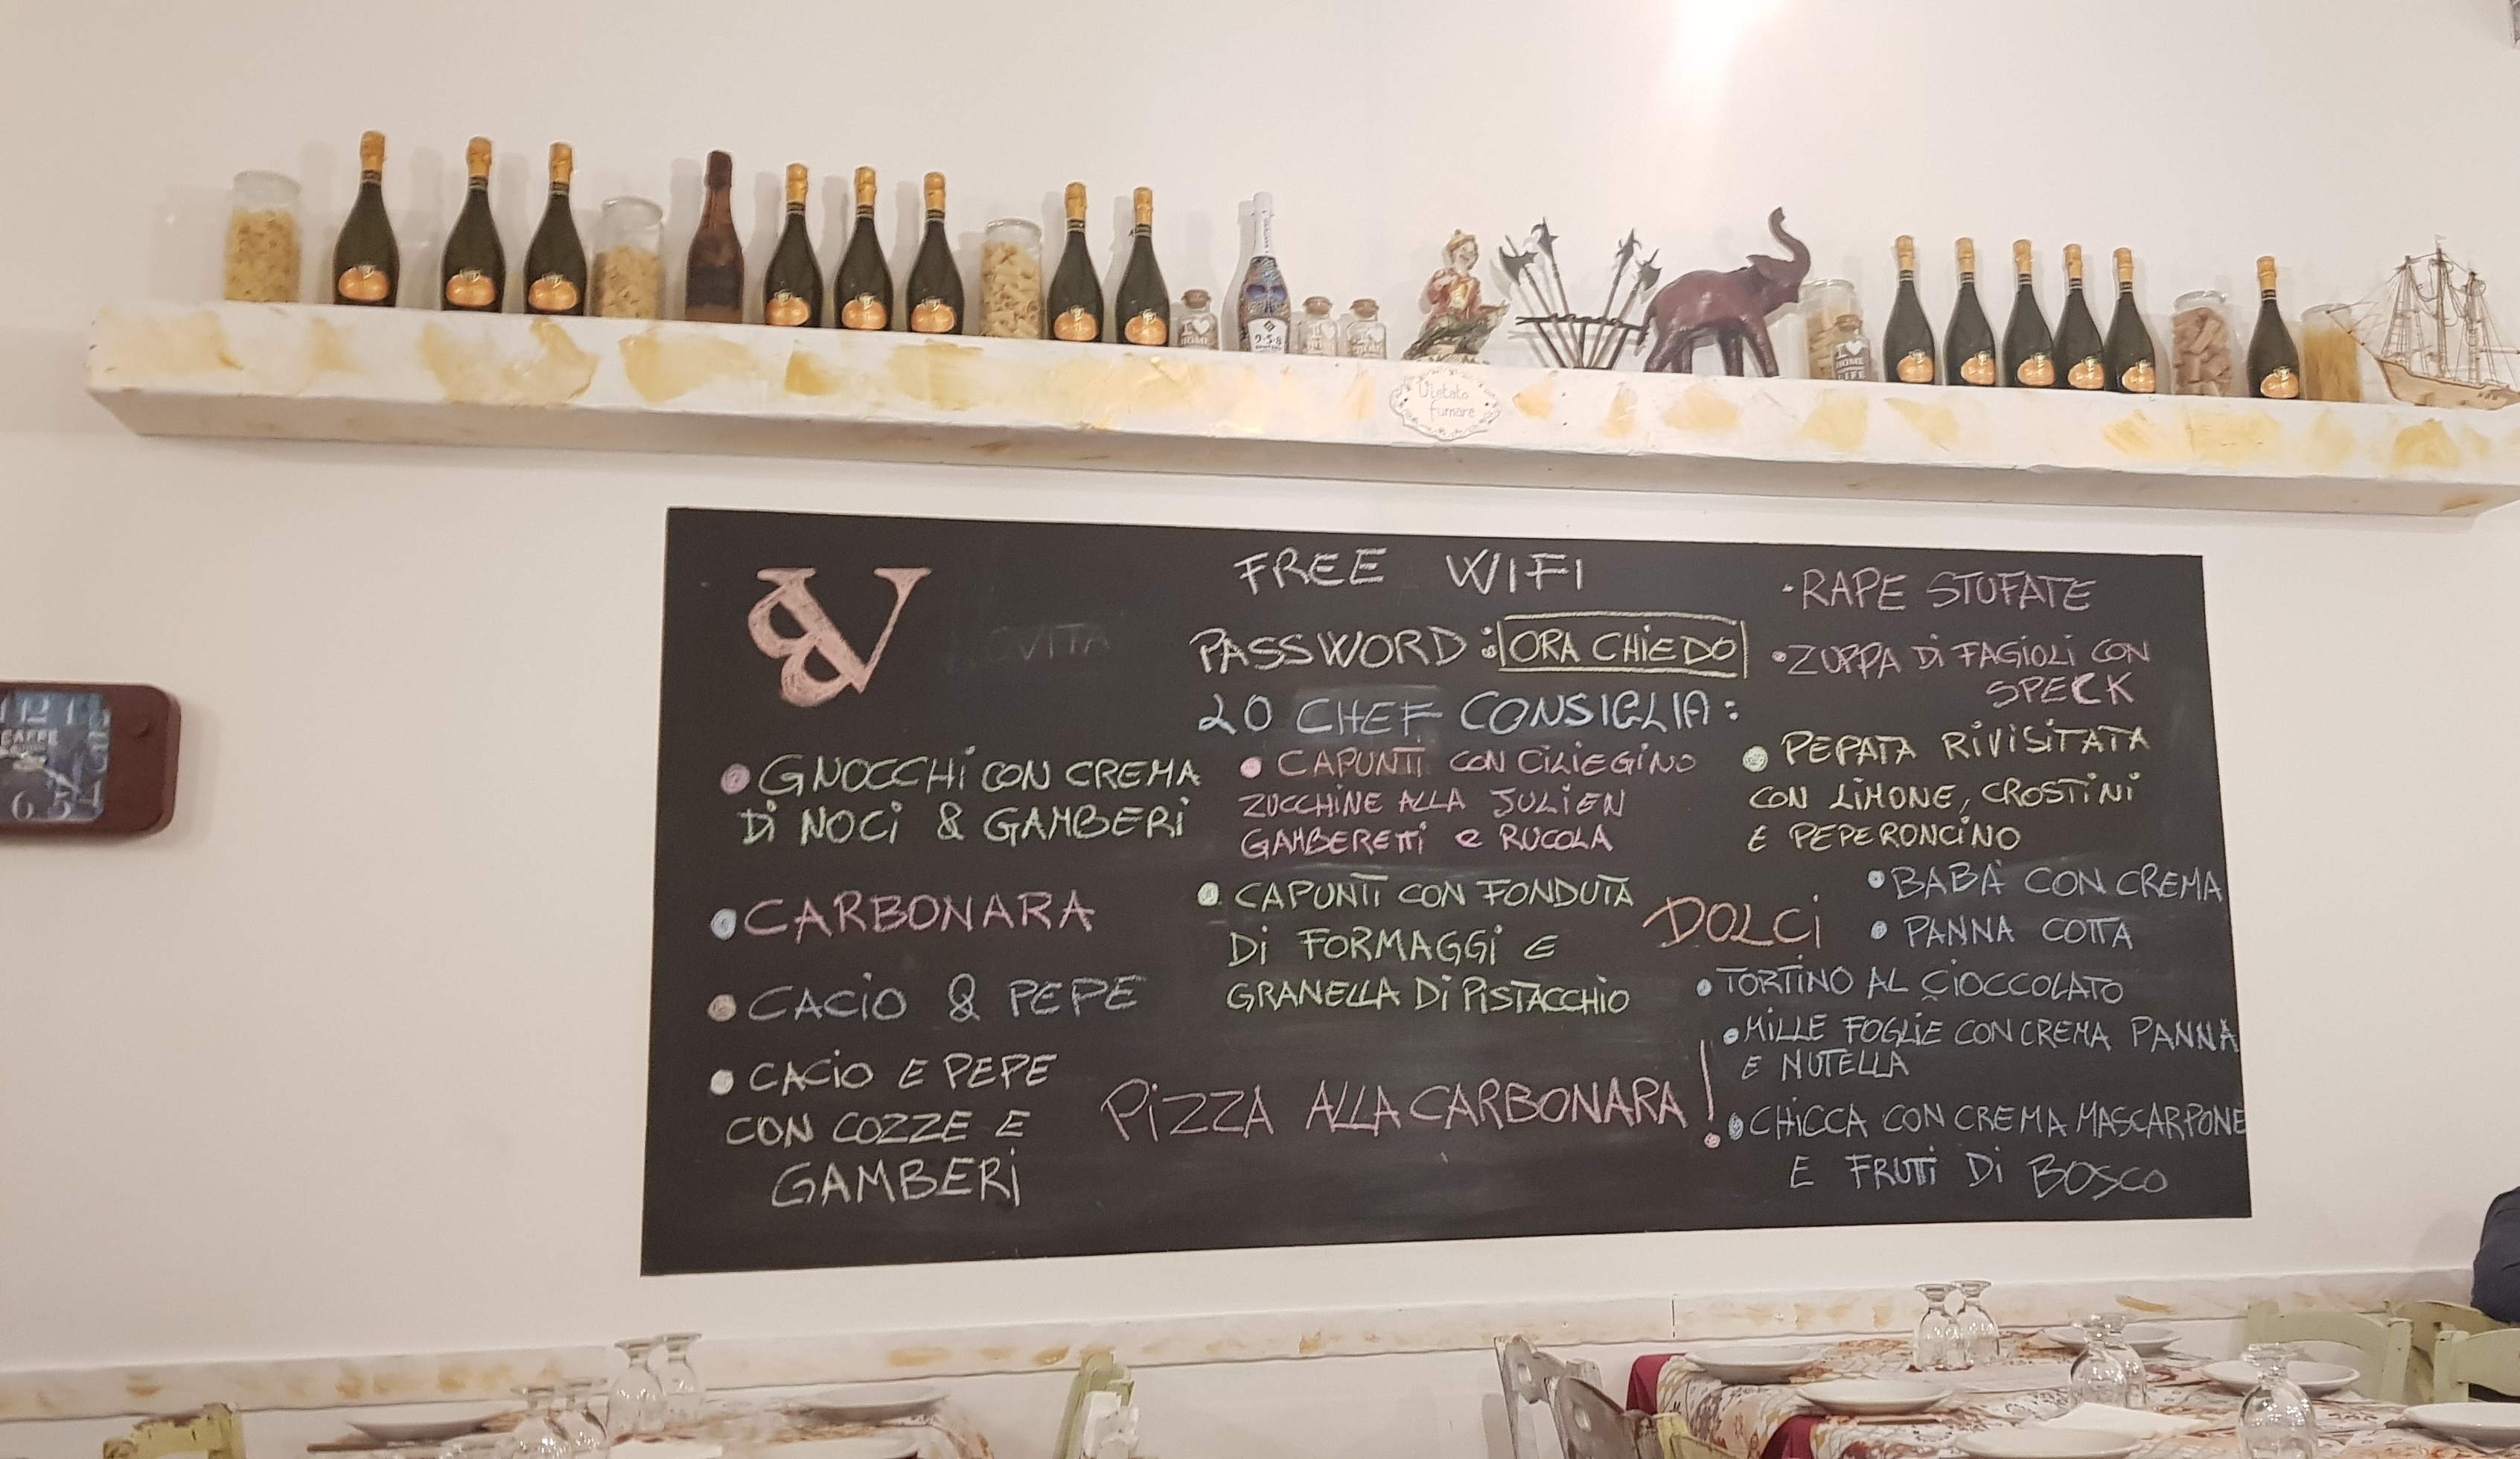 I ♥
HOME
9.5.8
I ♥
HOME
LIFE
Vietato
fumare
12
CAFFÈ
6 5 4
BV
NOVITA'
GNOCCHI CON CREMA
DI NOCI & GAMBERI
CARBONARA
CACIO & PEPE
CACIO E PEPE
CON COZZE E
GAMBERI
FREE WIFI
PASSWORD: ORA CHIEDO
LO CHEF CONSIGLIA:
CAPUNTI CON CILIEGINO
ZUCCHINE ALLA JULIEN
GAMBERETTI e RUCOLA
CAPUNTI CON FONDUTA
DI FORMAGGI E
GRANELLA DI PISTACCHIO
PIZZA ALLA CARBONARA!
RAPE STUFATE
ZUPPA DI FAGIOLI CON
SPECK
PEPATA RIVISITATA
CON LIMONE, CROSTINI
E PEPERONCINO
DOLCI
BABÀ CON CREMA
PANNA COTTA
TORTINO AL CIOCCOLATO
MILLE FOGLIE CON CREMA PANNA
E NUTELLA
CHICCA CON CREMA MASCARPONE
E FRUTTI DI BOSCO